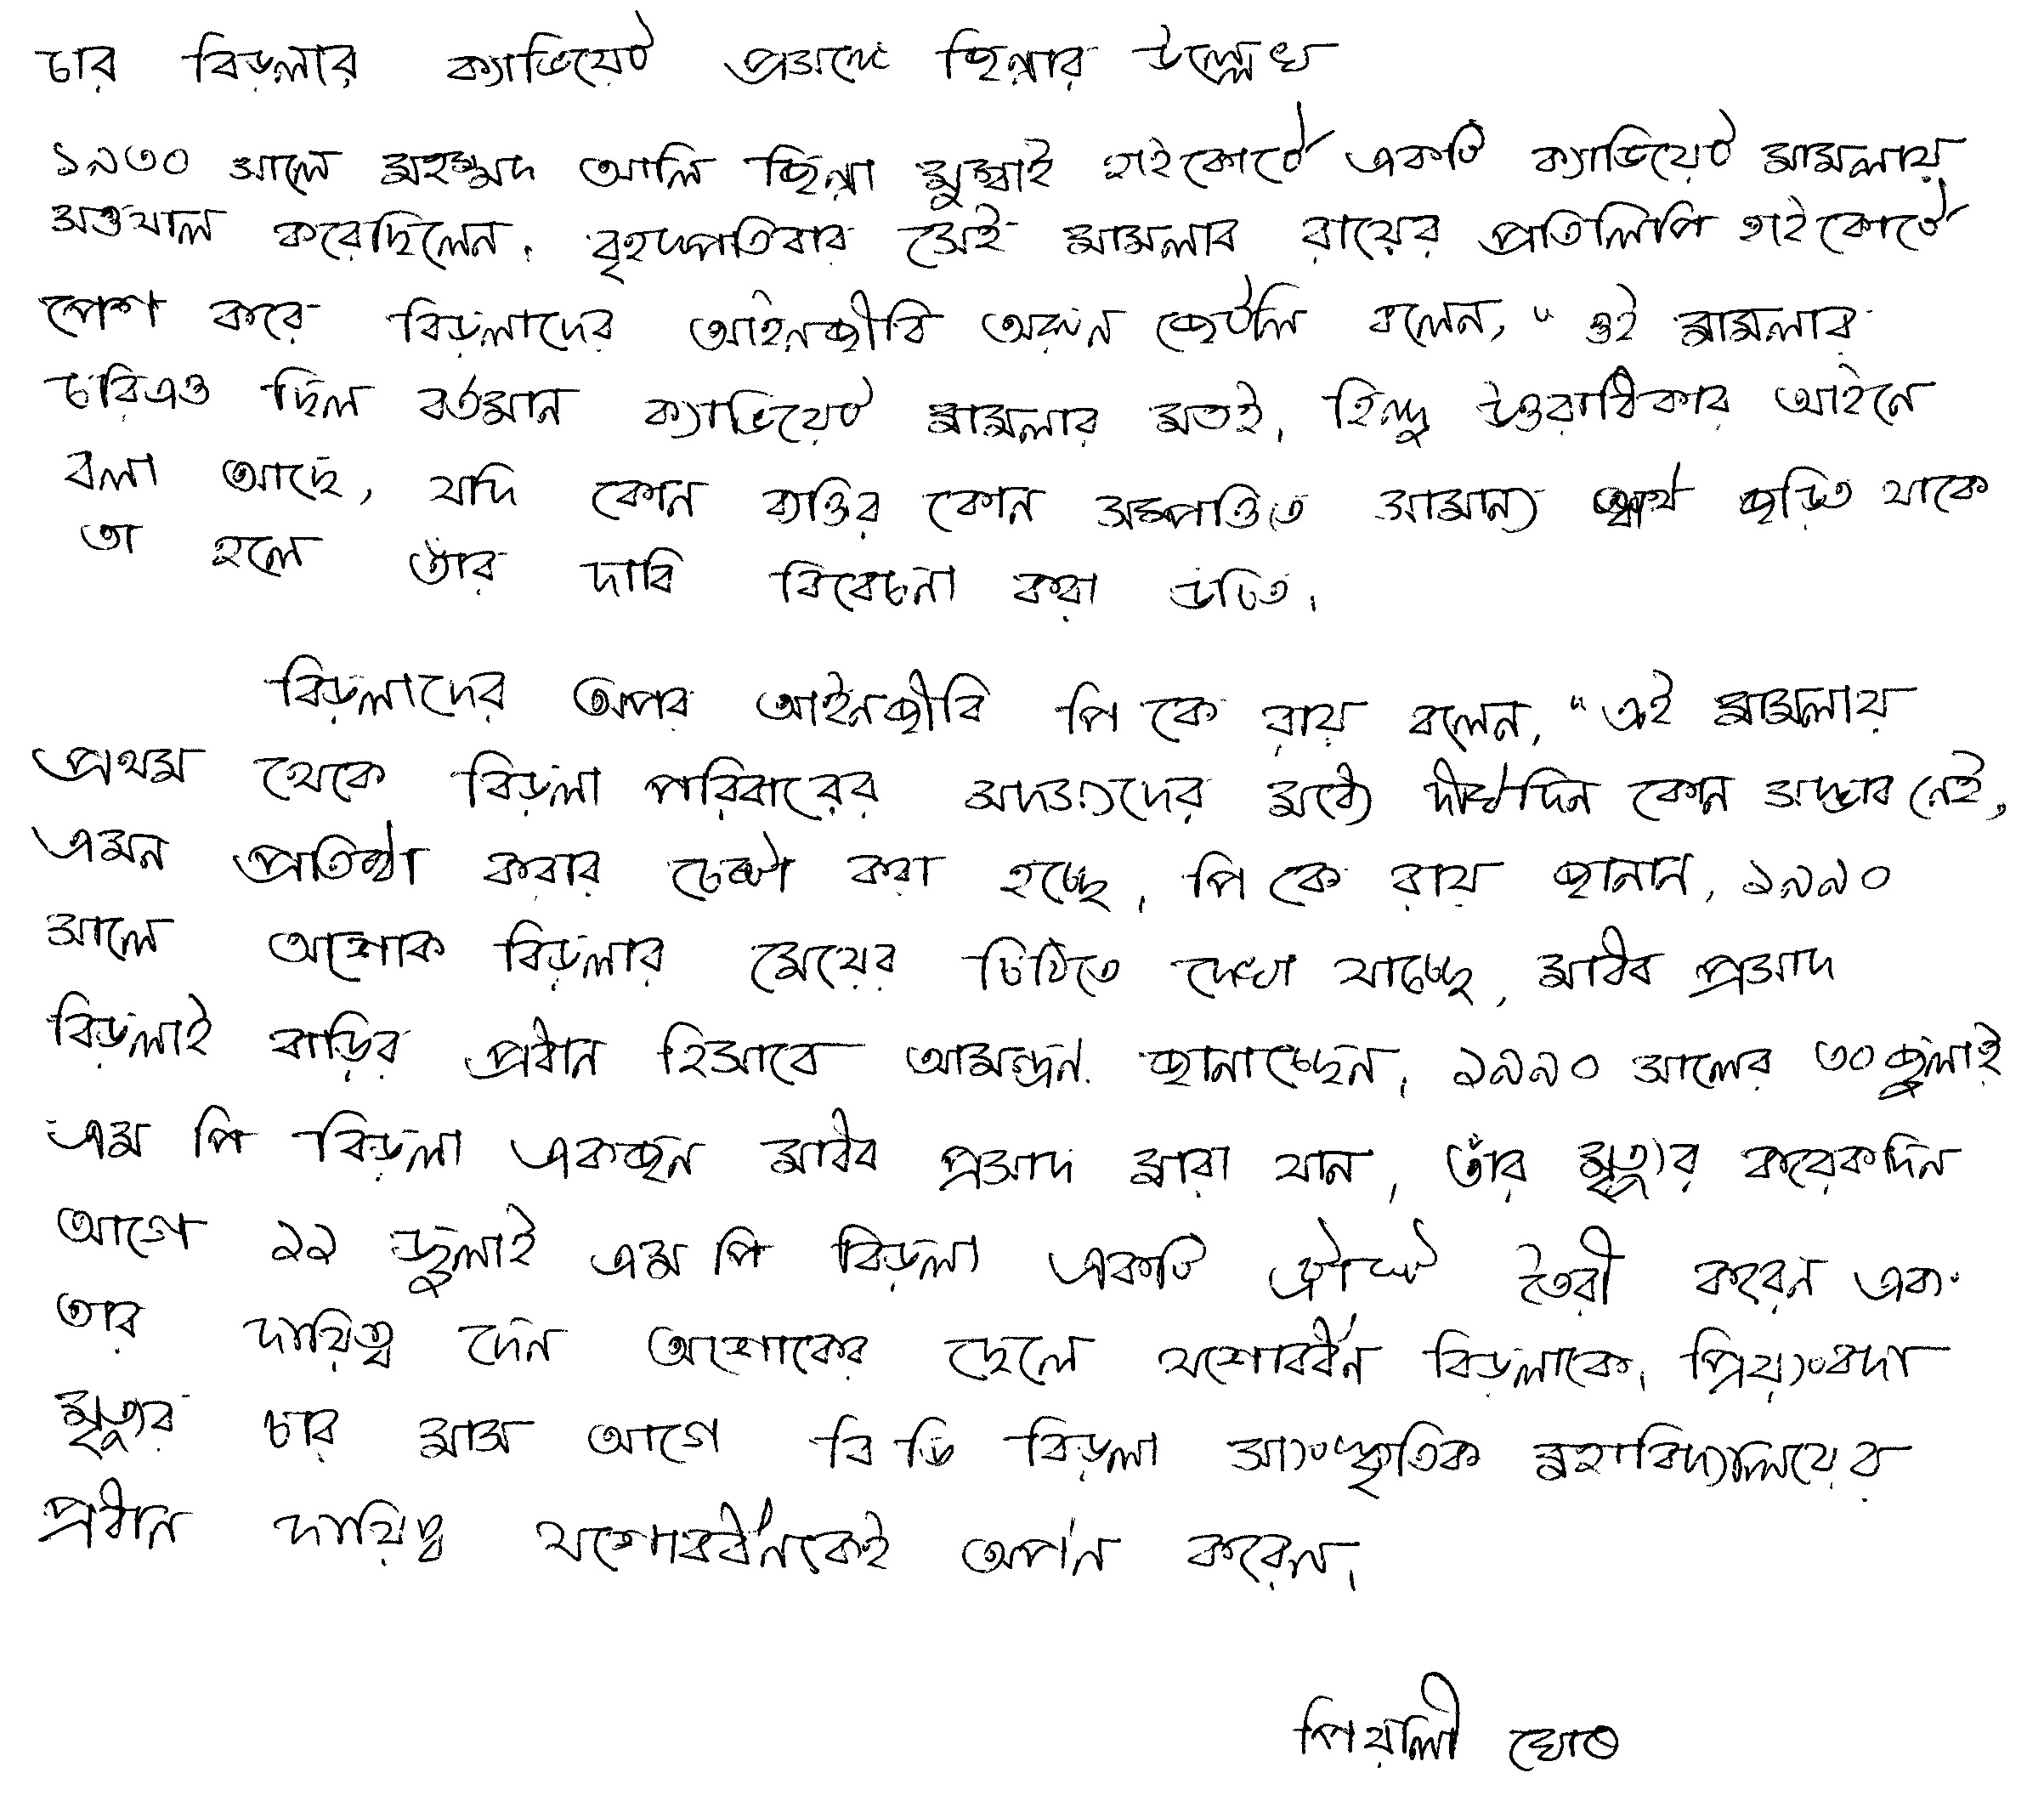 চার বিড়লার ক্যাভিয়েট প্রসঙ্গে জিন্নার উল্লেখ
১৯৩০ সালে মহম্মদ আলি জিন্না মুম্বাই হাইকোর্টে একটি ক্যাভিয়েট মামলায়
সওয়াল করেছিলেন। বৃহস্পতিবার সেই মামলার রায়ের প্রতিলিপি হাইকোর্টে
পেশ করে বিড়লাদের আইনজীবি অরূন জেটলি বলেন, "ওই মামলার
চরিত্রও ছিল বর্তমান ক্যাভিয়েট মামলার মতই। হিন্দু উত্তরাধিকার আইনে
বলা আছে, যদি কোন ব্যক্তির কোন সম্পত্তিতে সামান্য স্বার্থ জড়িত থাকে
তা হলে তাঁর দাবি বিবেচনা করা উচিত।
বিড়লাদের অপর আইনজীবি পি কে রায় বলেন, "এই মামলায়
প্রথম থেকে বিড়লা পরিবারের সদস্যদের মধ্যে দীর্ঘদিন কোন সদ্ভাব নেই,
এমন প্রতিষ্ঠা করার চেষ্টা করা হচ্ছে। পি কে রায় জানান, ১৯৯০
সালে অশোক বিড়লার মেয়ের চিঠিতে দেখা যাচ্ছে, মাধব প্রসাদ
বিড়লাই বাড়ির প্রধান হিসাবে আমন্ত্রন জানাচ্ছেন। ১৯৯০ সালের ৩০ জুলাই
এম পি বিড়লা একজন মাধব প্রসাদ মারা যান, তাঁর মৃত্যুর কয়েকদিন
আগে ২২ জুলাই এম পি বিড়লা একটি ট্রাস্ট তৈরী করেন এবং
তার দায়িত্ব দেন অশোকের ছেলে যশোবর্ধন বিড়লাকে। প্রিয়ংবদা
মৃত্যুর চার মাস আগে বি ডি বিড়লা সাংস্কৃতিক মহাবিদ্যালয়ের
প্রধান দায়িত্ব যশোবর্ধনকেই অর্পন করেন।
পিয়ালী ঘোষ